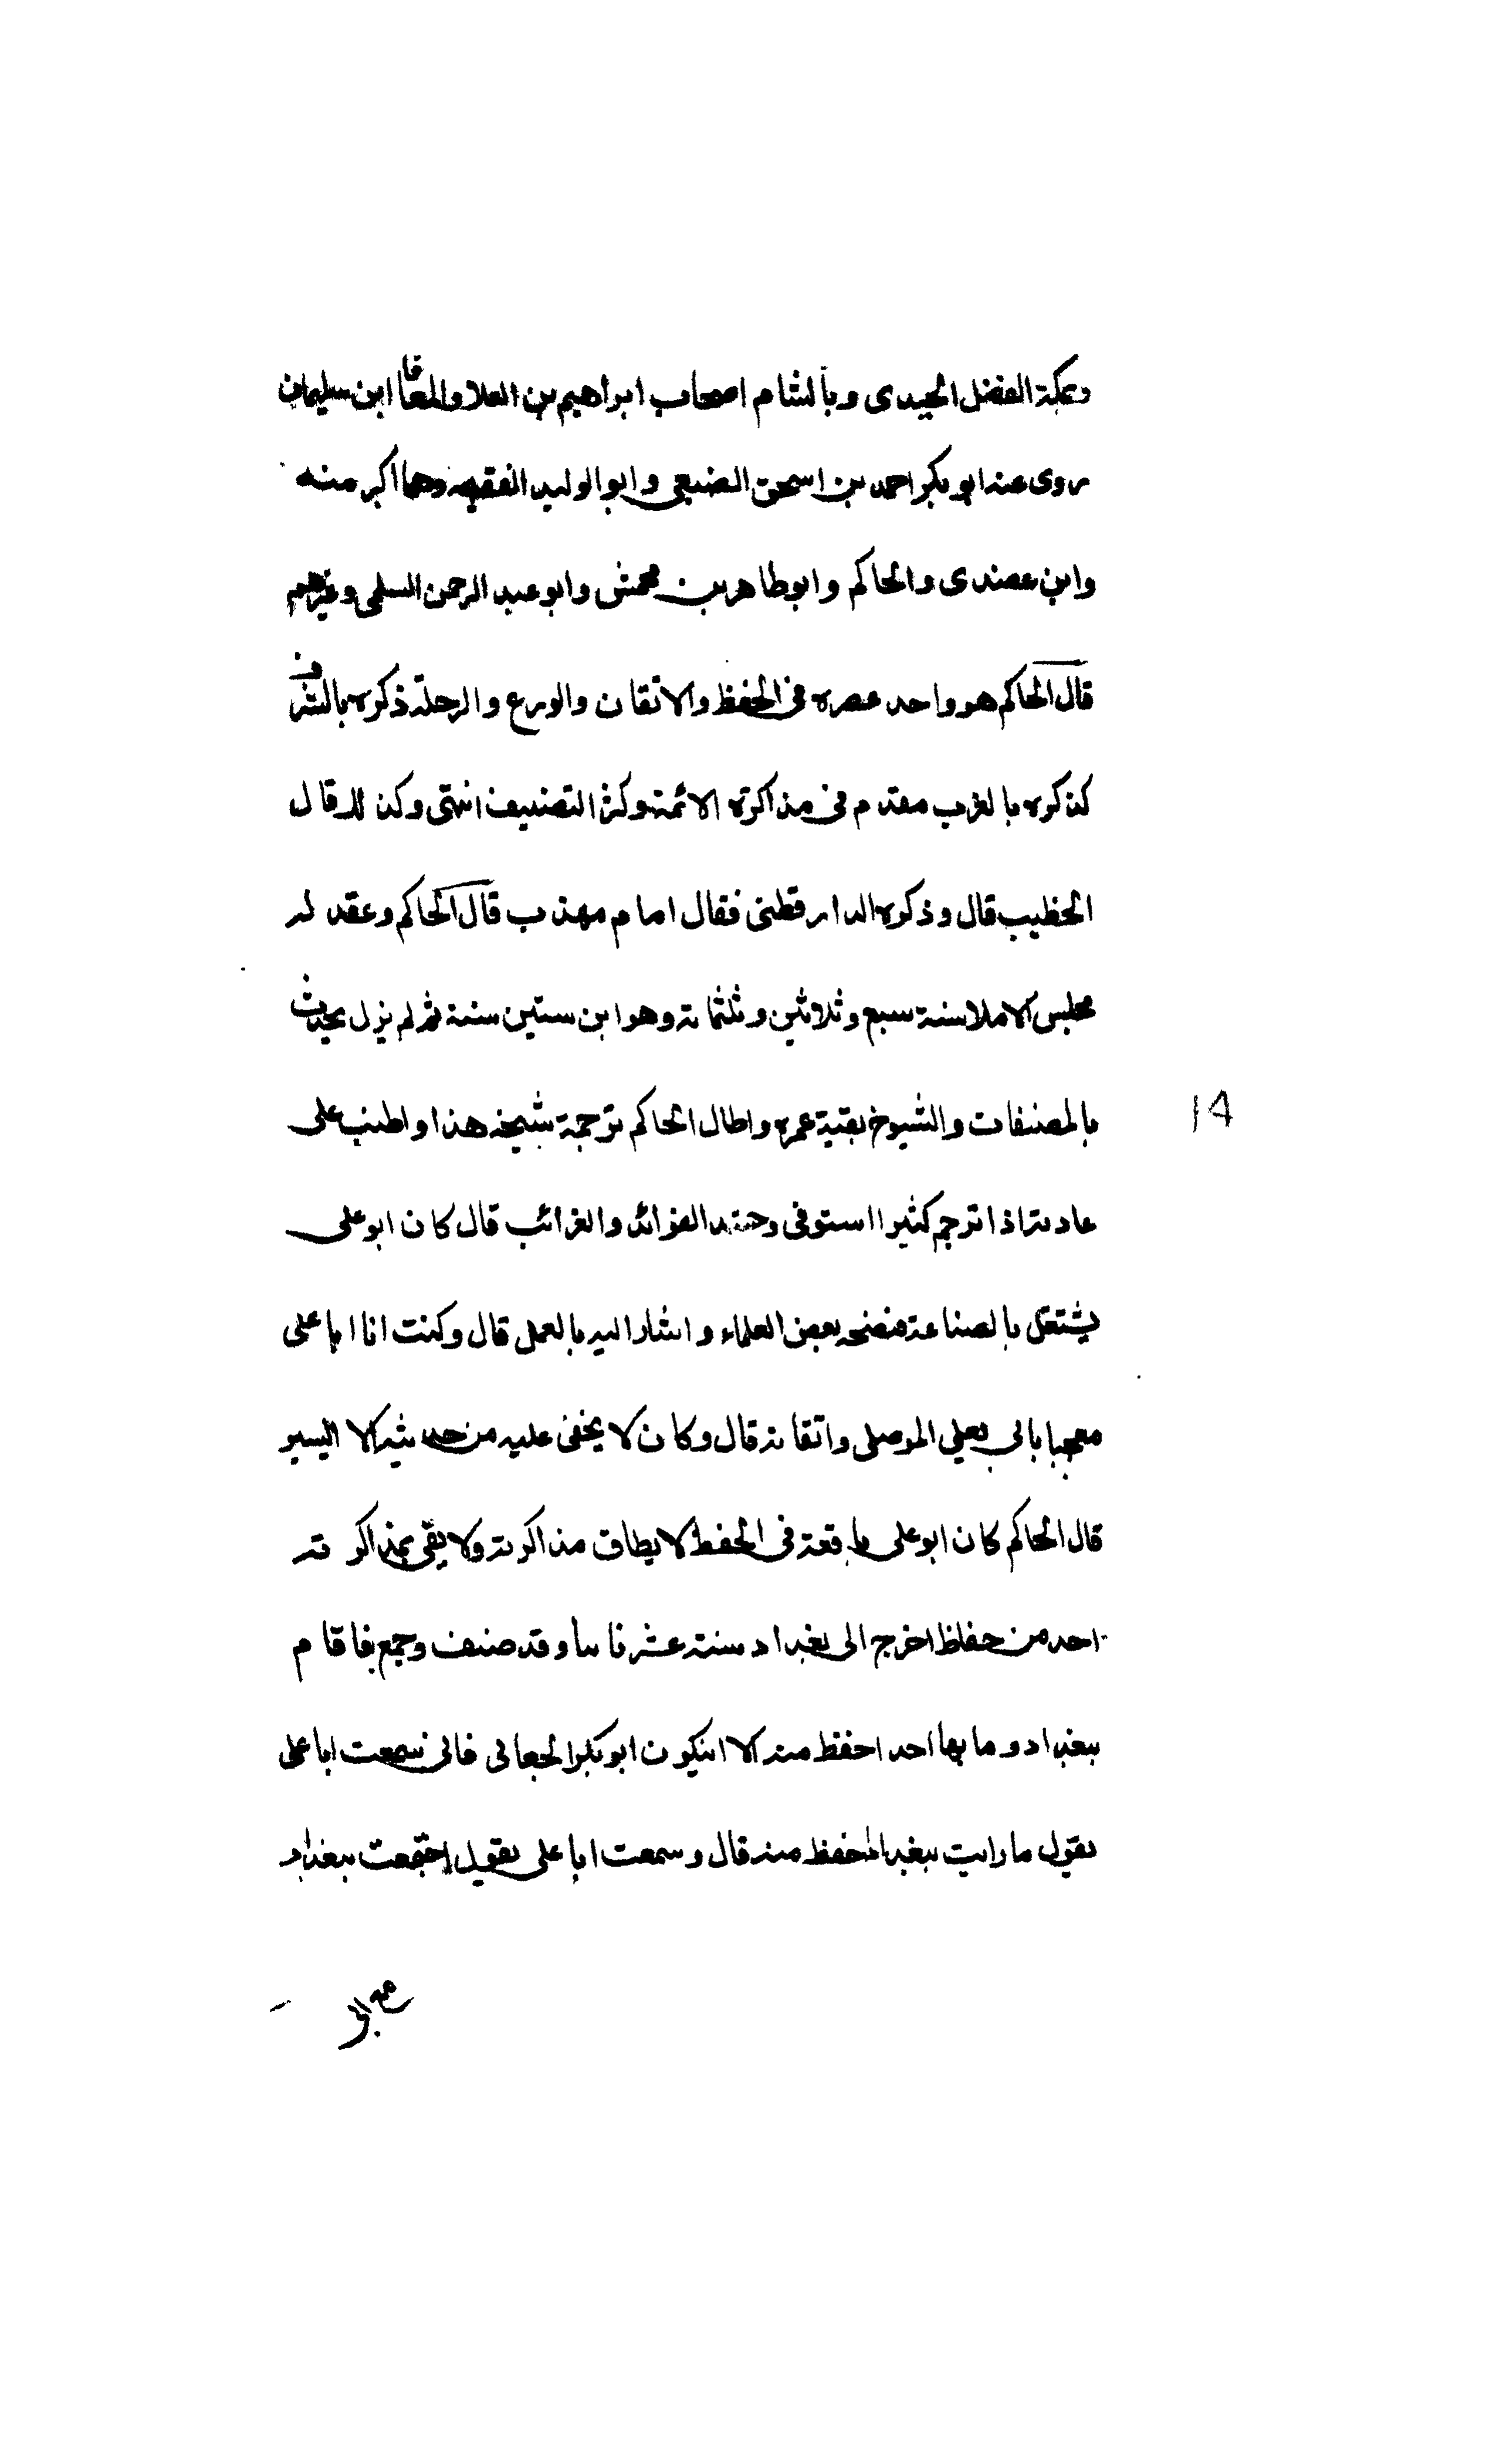 وبمكة الفضل الجيدى وبالشام اصحاب ابراهيم بن العلا والمعافا ابن سليمان
روى عنه ابو بكر احمد بن اسحق الضبعى وابو الوليد الفقيه وهما اكبر منه
وابن عصندى والحاكم وابو طاهر بن محمش وابو عبد الرحمن السلمى وغيرهم
قال الحاكم هو واحد عصره فى الحفظ والاتقان والورع والرحلة ذكره بالشرق
كذكره بالغرب مقدم فى مذاكرة الائمة وكثرة التصنيف انتهى وكذلك قال
الخطيب قال وذكره الدارقطنى فقال امام مهذب قال الحاكم وعقد له
مجلس الاملا سنة سبع وثلاثين وثلثمائة وهو ابن ستين سنة ثم لم يزل يحدث
بالمصنفات والشيوخ بقية عمره واطال الحاكم ترجمة شيخه هذا واطنب على
عادته اذا ترجم كثيرا استوفى وحشد الفوائد والغرائب قال كان ابو على
يشتغل بالصناعة فنصحه بعض العلماء واشار اليه بالعمل قال وكنت انا ابا على
معجبا بابى يعلى الموصلى واتقانه قال وكان لا يخفى عليه من حديثه الا اليسير
قال الحاكم كان ابو على باقعة فى الحفظ لا يطاق مذاكرته ولا يفى بمذاكرته
احد من حفاظ اخرج الى بغداد سنة عشر ثانيا وقد صنف وجمع فاقام
ببغداد وما بها احد احفظ منه الا ان يكون ابو بكر الجعابى فانى سمعت ابا على
يقول ما رايت ببغداد احفظ منه قال وسمعت ابا على يقول اجتمعت ببغداد
14